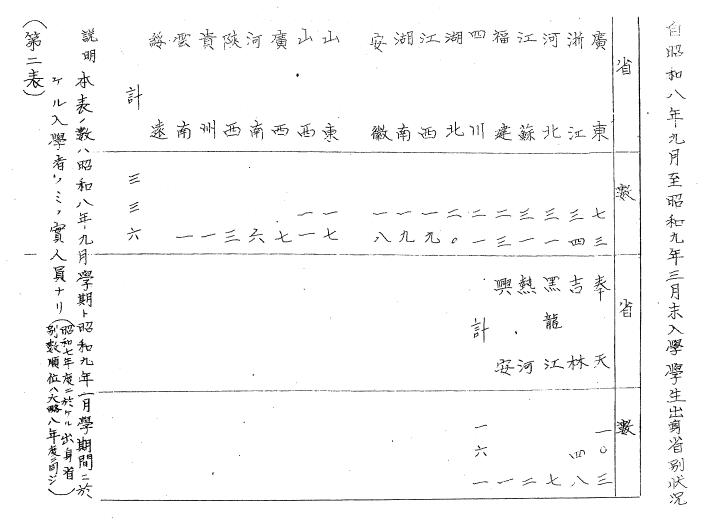 自昭和八年九月至昭和九年三月末入學學生出身省別状況
省 數 省 數
廣東 七三 奉天 一〇三
浙江 三四 吉林 四八
河北 三一 黑龍江 七
江蘇 三一 熱河 二
福建 二三 興安 一
四川 二一 計 一六一
湖北 二〇
江西 一九
湖南 一九
安徽 一八
山東 一七
山西 一一
廣西 七
河南 六
陝西 三
貴州 一
雲南 一
綏遠
計 三三六
說明 本表ノ數ハ昭和八年九月學期ト昭和九年一月學期間ニ於
ケル入學者ノミノ實人員ナリ
（昭和七年度ニ於ケル出身省
別數順位ハ大略八年度ニ同ジ）
（第二表）